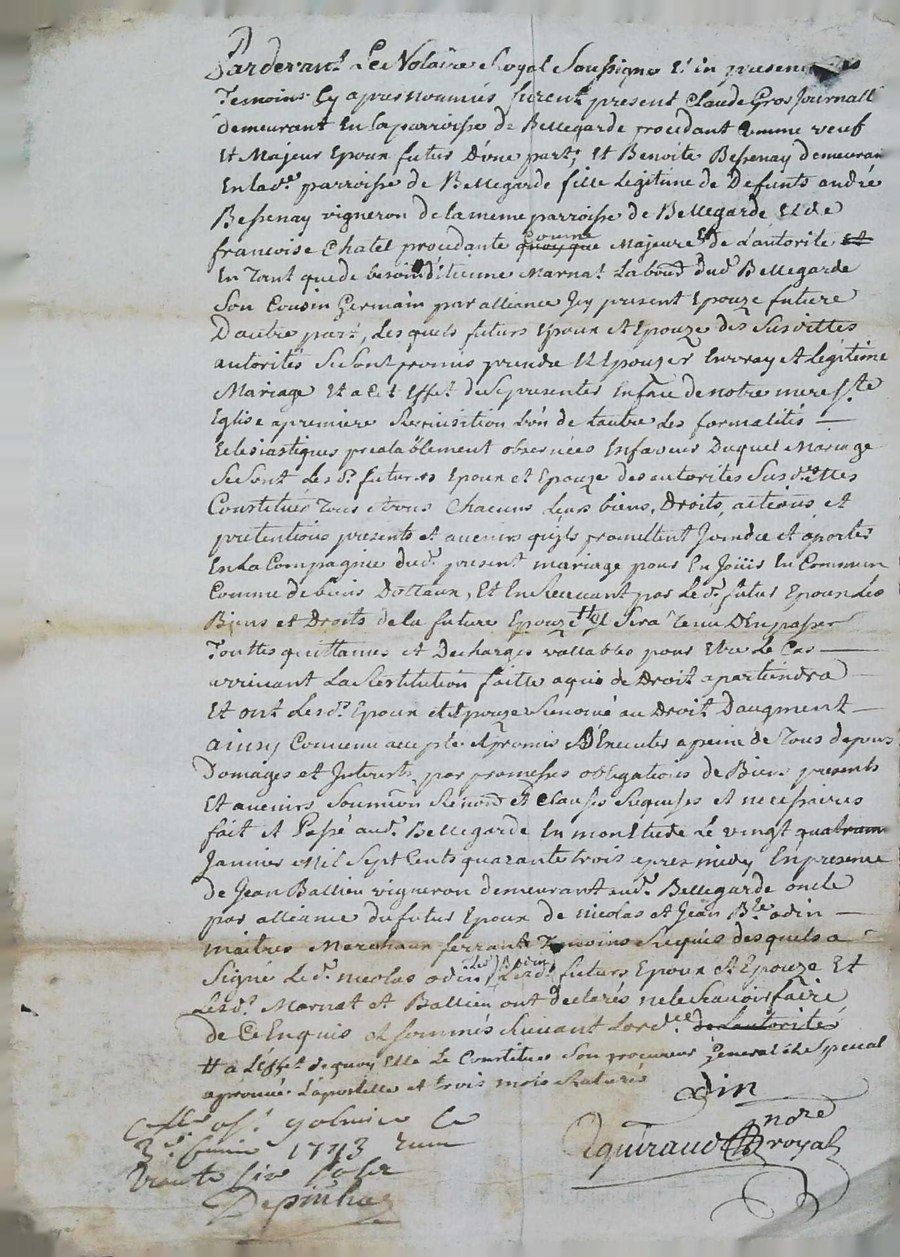 Pardevant Le Notaire Royal Soussigné Et in presence des
Temoins Cy apres nommés furent present Claude Gros Journall
demeurant En la parroisse de Bellegarde procedant comme veuf
Et Majeur Epoux futur D'une part; Et Benoite Bessenay demeurant
En lad.e parroisse de Bellegarde fille Legitime de Defunts andré
Bessenay vigneron de la meme parroisse de Bellegarde Et de
francoise Chatel procedante quoyque comme Majeure Et de L'autorité Et
En Tant que de besoin d'Etienne Marnat Labour dud. Bellegarde
Son Cousin Germain par alliance Icy present Epouze future
D'autre part, Lesquels futurs Epoux et Epouze des Susdittes
autorités Se Sont promis prendre Et Epouzer En vray et Legitime
Mariage Et a Cet Effet de Se presenter En face de notre mere S.te
Eglise a premiere Requisition L'un de L'autre Les formalités
Eclesiastiques prealablement observées En faveur Duquel Mariage
Se Sont Les d. futurs Epoux et Epouze des autorités Susd.ettes
Constitués Tous et tous Chacuns Leurs biens, Droits, actions et
pretentions presents et avenirs qu'ils promettent Joindre et aporter
En La Compagnie dud. present mariage pour En Joüir En Commun
Comme de biens Dottaux, Et En Recevant par Led. futur Epoux Les
Biens et Droits de la future Epouze # Il Sera Tenu D'En passer
Touttes quittances et Decharges vallables pour Etre Le Cas
arrivant La Restitution faitte a qui de Droit apartiendra
Et ont Lesd. Epoux et Epouze Renoncé au Droit D'augment
ainsy Convenu accepté Et promis D'Executer a peine de Tous depens
Domages et Interets par promesses obligations de Biens presents
Et avenirs Soumiōn Renonc et Clauses Requises et necessaires
fait et Passé aud. Bellegarde En mon Etude Le vingt
Janvier Mil Sept Cents quarante trois apres midy En presence
de Jean Ballieu vigneron demeurant aud. Bellegarde oncle
par alliance du futur Epoux de nicolas et Jean B.te odin
maitres Marechaux ferrants Temoins Requis desquels a
Signé Led. nicolas odin, Lesd. futurs Epoux et Epouze Et
Lesd. Marnat et Ballieu ont declarés ne le Savoir faire
de Ce Enquis et sommés Suivant Lord.ce de L'autorité
# a L'effet de quoy Elle Le Constitue Son procureur General et Special
aprouvé L'apostille et trois mots Raturés
odin
Eguiraud N.re royal
1743